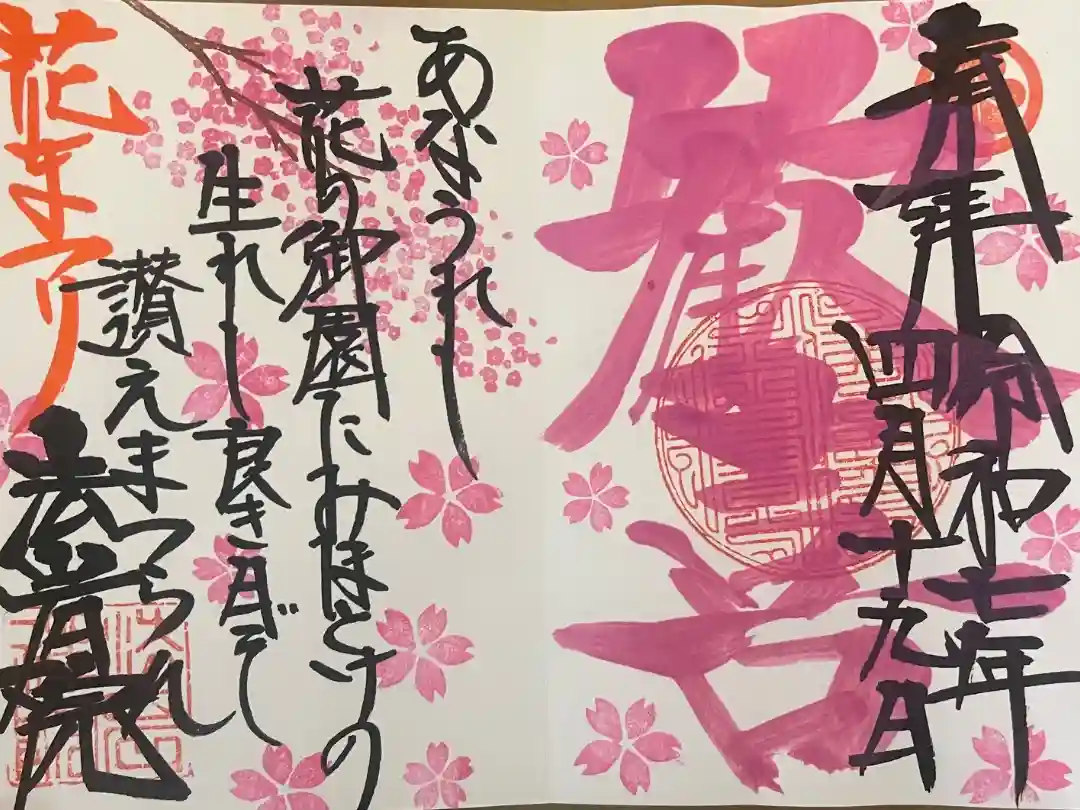 奉拝 令和七年
四月十九日
歡喜
あなうれし
花の御園にみほとけの
生れし良き日ぞ
讃えまつられ
花まつり